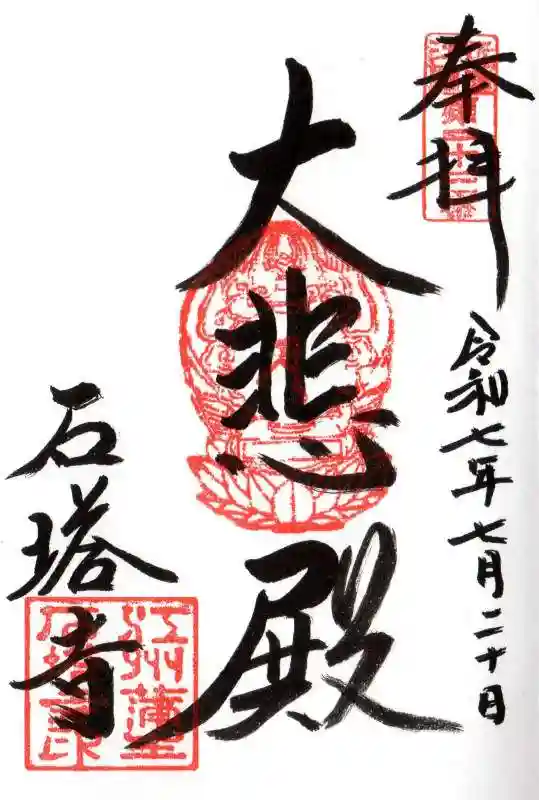 奉拝
令和七年七月二十日
大悲殿
石塔寺
江州蒲生